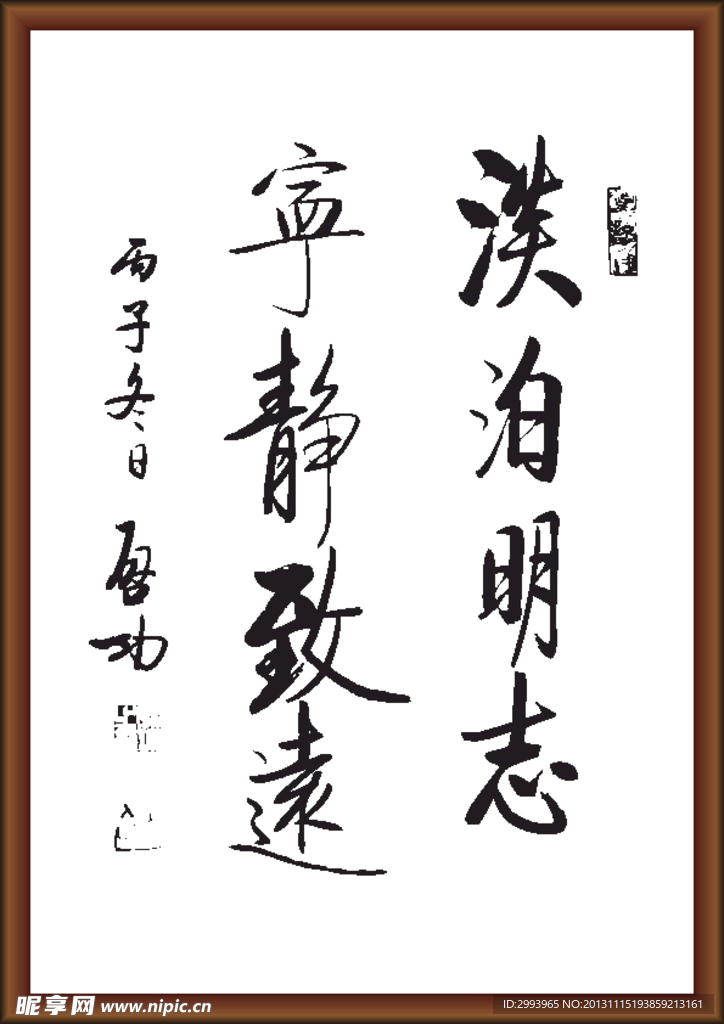 淡泊明志
寧靜致遠
丙子冬日 啓功
昵享网 www.nipic.cn
ID:2993965 NO:20131115193859213161